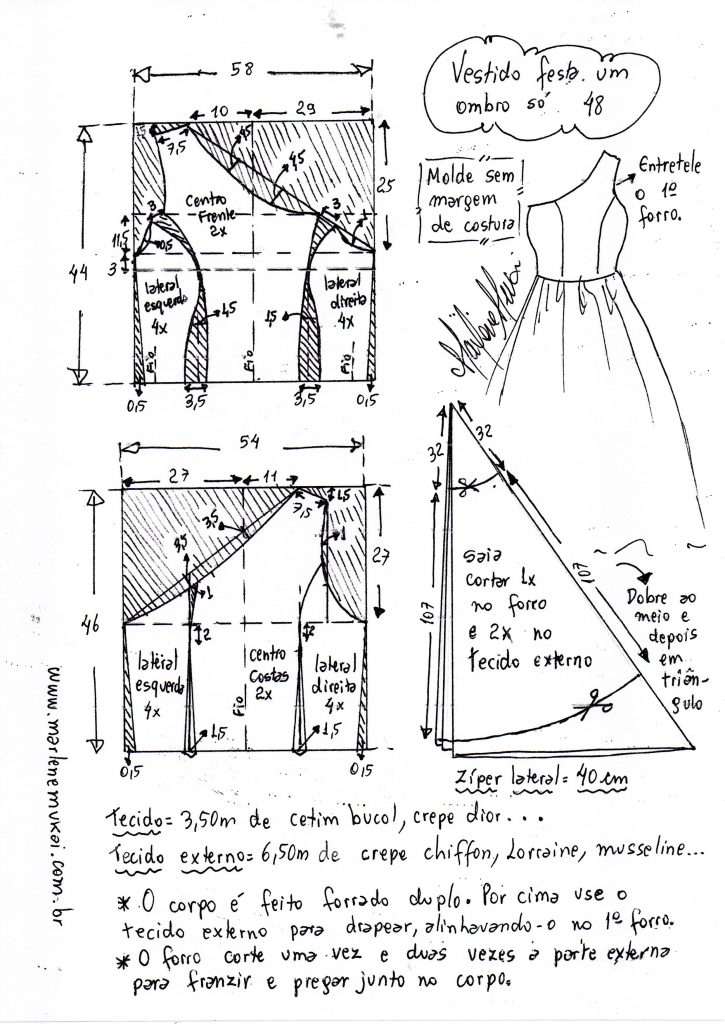 58
10
29
1,5
7,5
4,5
4,5
25
3
3
1
Centro
Frente
2x
11,5
0,5
3
44
lateral
esquerda
4x
4,5
1,5
lateral
direita
4x
Fio
Fio
Fio
0,5
3,5
3,5
0,5
Vestido festa um
ombro só 48
Molde sem
margem
de costura
Entretele
o 1º
forro.
54
27
11
1,5
7,5
3,5
1
27
4,5
1
46
2
2
lateral
esquerda
4x
centro
Costas
2x
lateral
direita
4x
Fio
0,5
1,5
1,5
0,5
32
32
107
107
saia
cortar 1x
no forro
e 2x no
tecido externo
Dobre ao
meio e
depois
em
triân-
gulo
Zíper lateral = 40 cm
www.marlenemukai.com.br
Tecido = 3,50m de cetim bucol, crepe dior...
Tecido externo = 6,50m de crepe chiffon, Lorraine, musseline...
* O corpo é feito forrado duplo. Por cima use o
tecido externo para drapear, alinhavando-o no 1º forro.
* O forro corte uma vez e duas vezes a parte externa
para franzir e pregar junto no corpo.